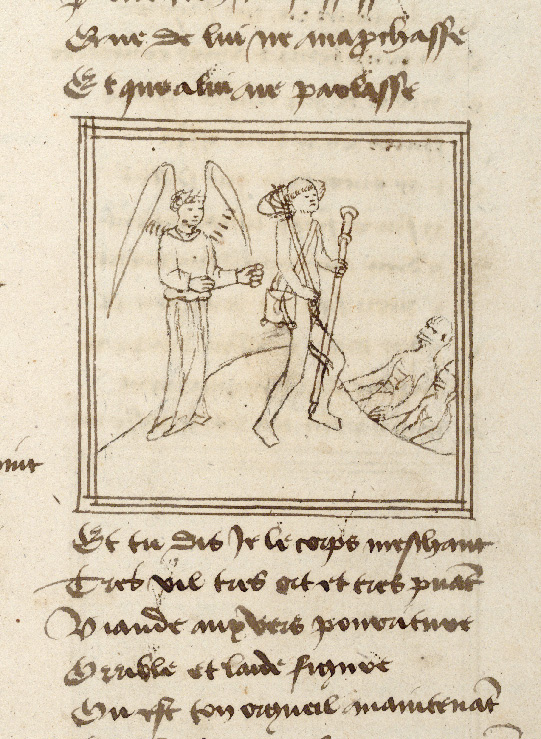 Que de lui ne maprochasse
Et que a lui ne parlasse
Et tu dis Je le corps meschant
Tres vil tres ort et tres puāt
Viande aux vers pourriture
Orrible et laide figure
Ou est ton orgueil maintenāt